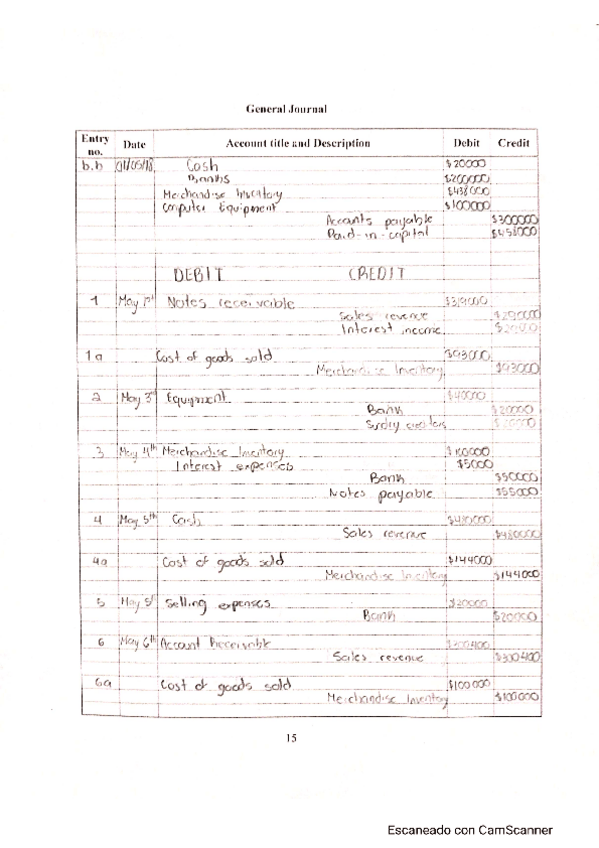 General Journal
Entry no. Date Account title and Description Debit Credit
b.b 01/05/18 Cash $20000
Banks $200000
Merchandise Inventory $438000
Computer Equipment $100000
Accounts payable $300000
Paid-in-capital $458000
DEBIT CREDIT
1 May 1st Notes receivable $319000
Sales revenue
Interest income
1a Cost of goods sold $93000
Merchandise Inventory $93000
2 May 3rd Equipment $40000
Bank $20000
Sundry creditors $20000
3 May 4th Merchandise Inventory $100000
Interest expenses $5000
Bank $50000
Notes payable $55000
4 May 5th Cash $480000
Sales revenue $480000
4a Cost of goods sold $144000
Merchandise Inventory $144000
5 May 5th Selling expenses $20000
Bank $20000
6 May 6th Account Receivable $300400
Sales revenue $300400
6a Cost of goods sold $100000
Merchandise Inventory $100000
15
Escaneado con CamScanner